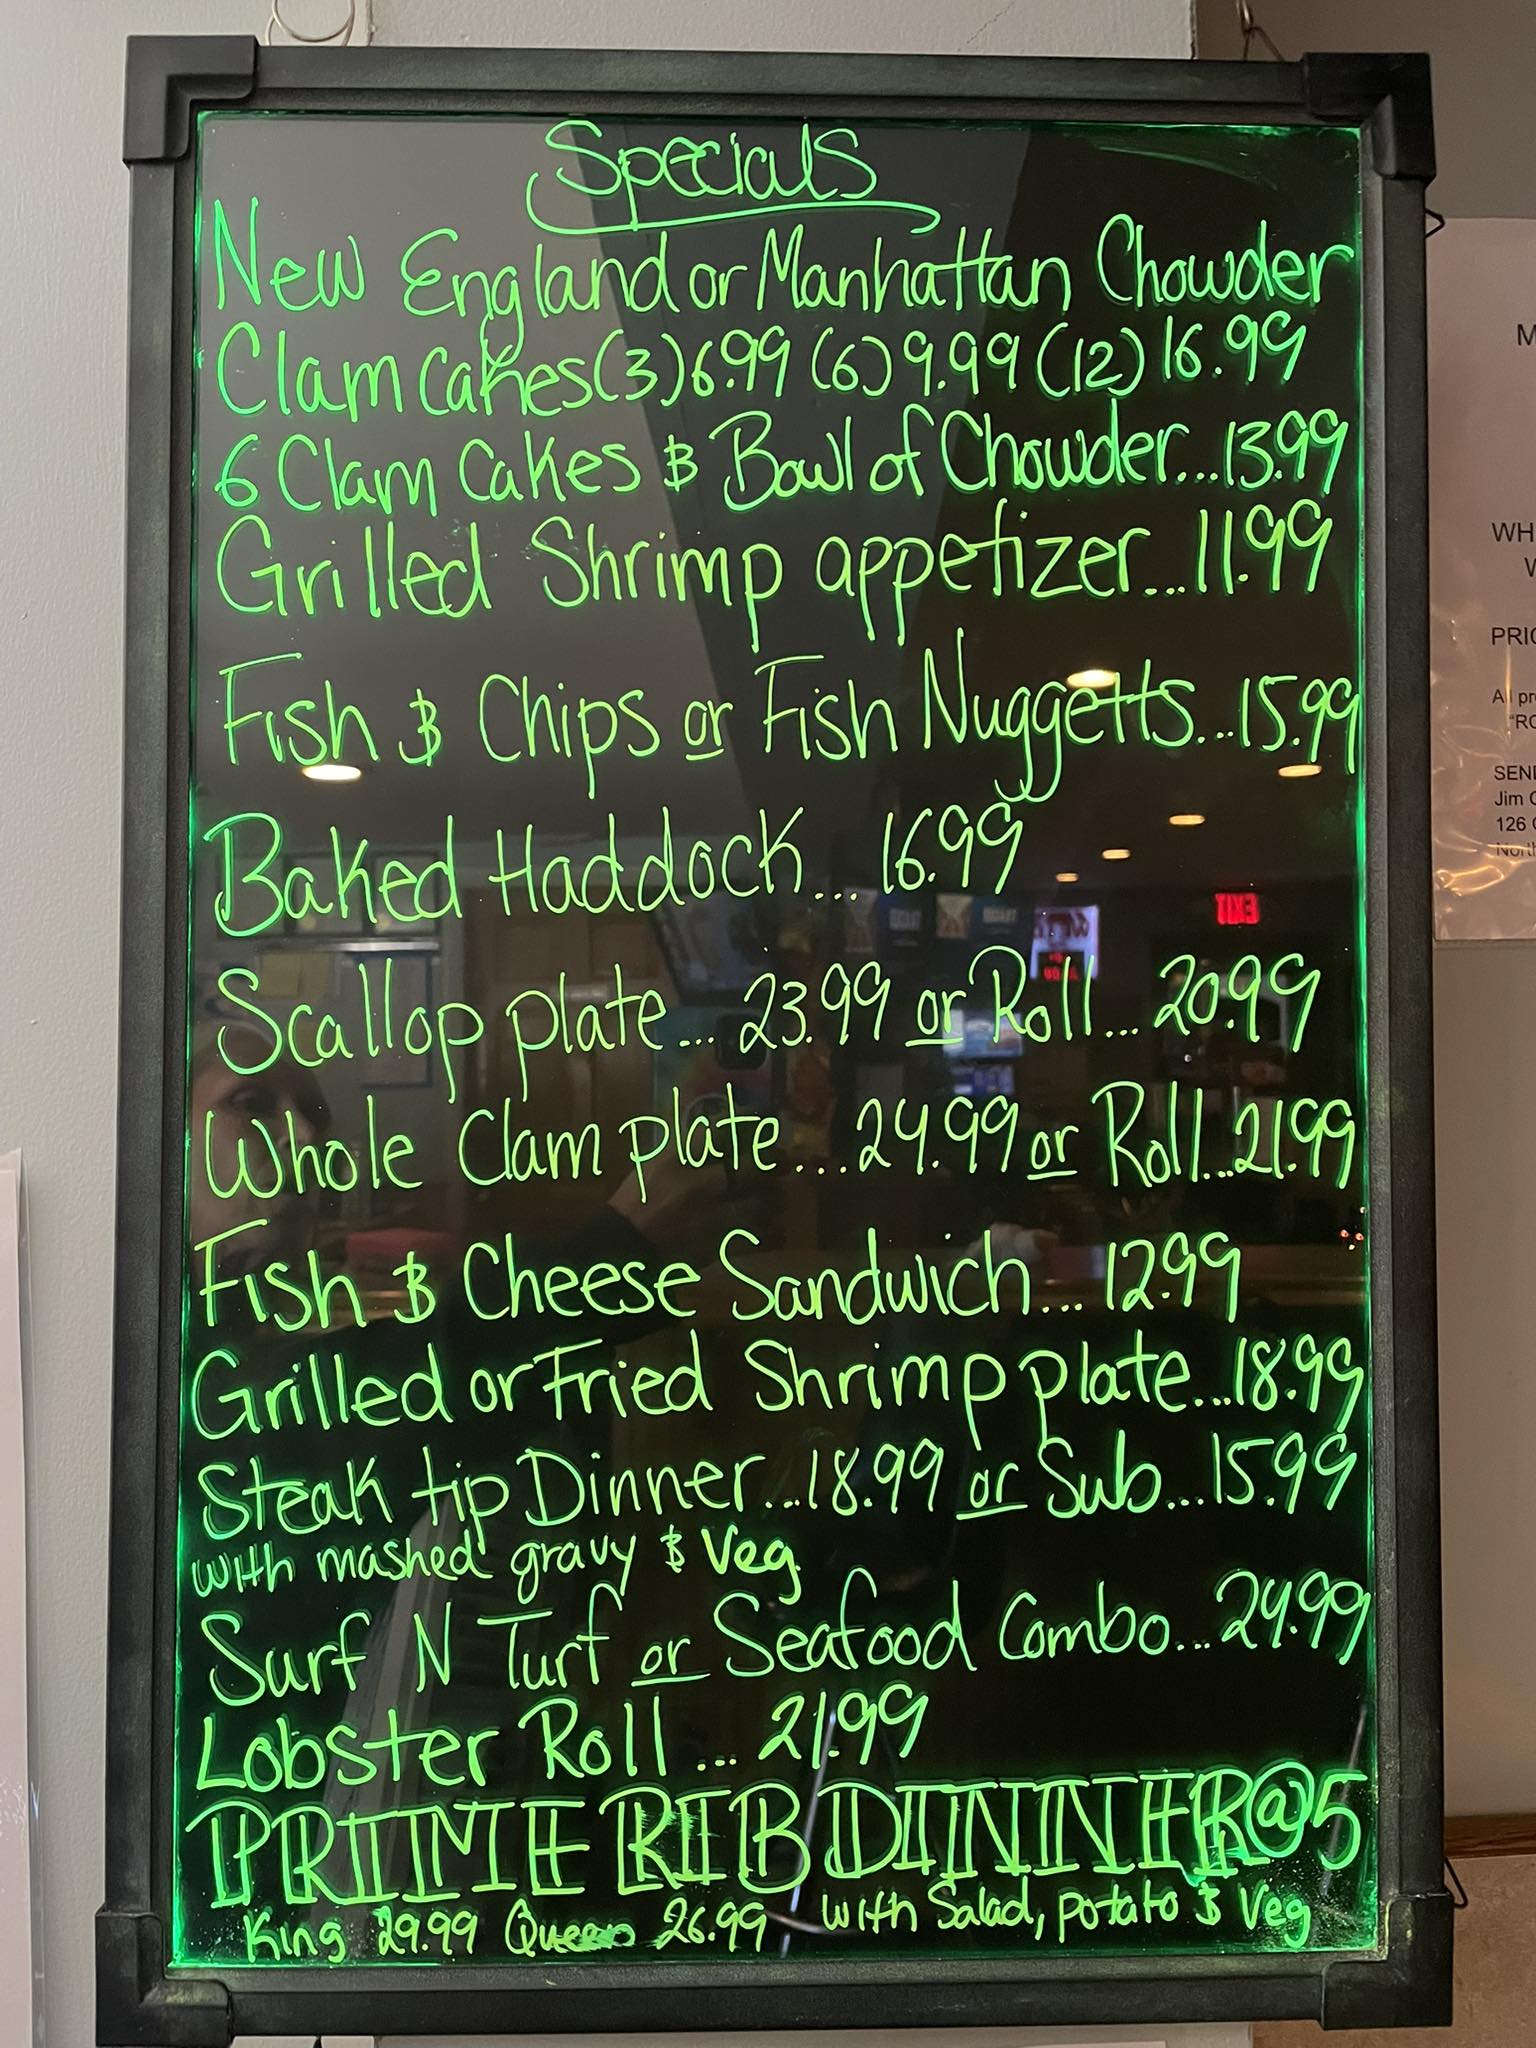 Specials
New England or Manhattan Chowder
Clam Cakes (3) 6.99 (6) 9.99 (12) 16.99
6 Clam Cakes & Bowl of Chowder...13.99
Grilled Shrimp appetizer...11.99
Fish & Chips or Fish Nuggetts...15.99
Baked Haddock...16.99
Scallop plate...23.99 or Roll...20.99
Whole Clam plate...24.99 or Roll...21.99
Fish & Cheese Sandwich...12.99
Grilled or Fried Shrimp plate...18.99
Steak tip Dinner...18.99 or Sub...15.99
with mashed gravy & Veg
Surf N Turf or Seafood Combo...24.99
Lobster Roll...21.99
PRIME RIB DINNER @ 5
King 29.99 Queen 26.99 with Salad, potato & Veg
EXIT
M
WH
W
PRIC
All pr
"RO
SEN
Jim C
126
North